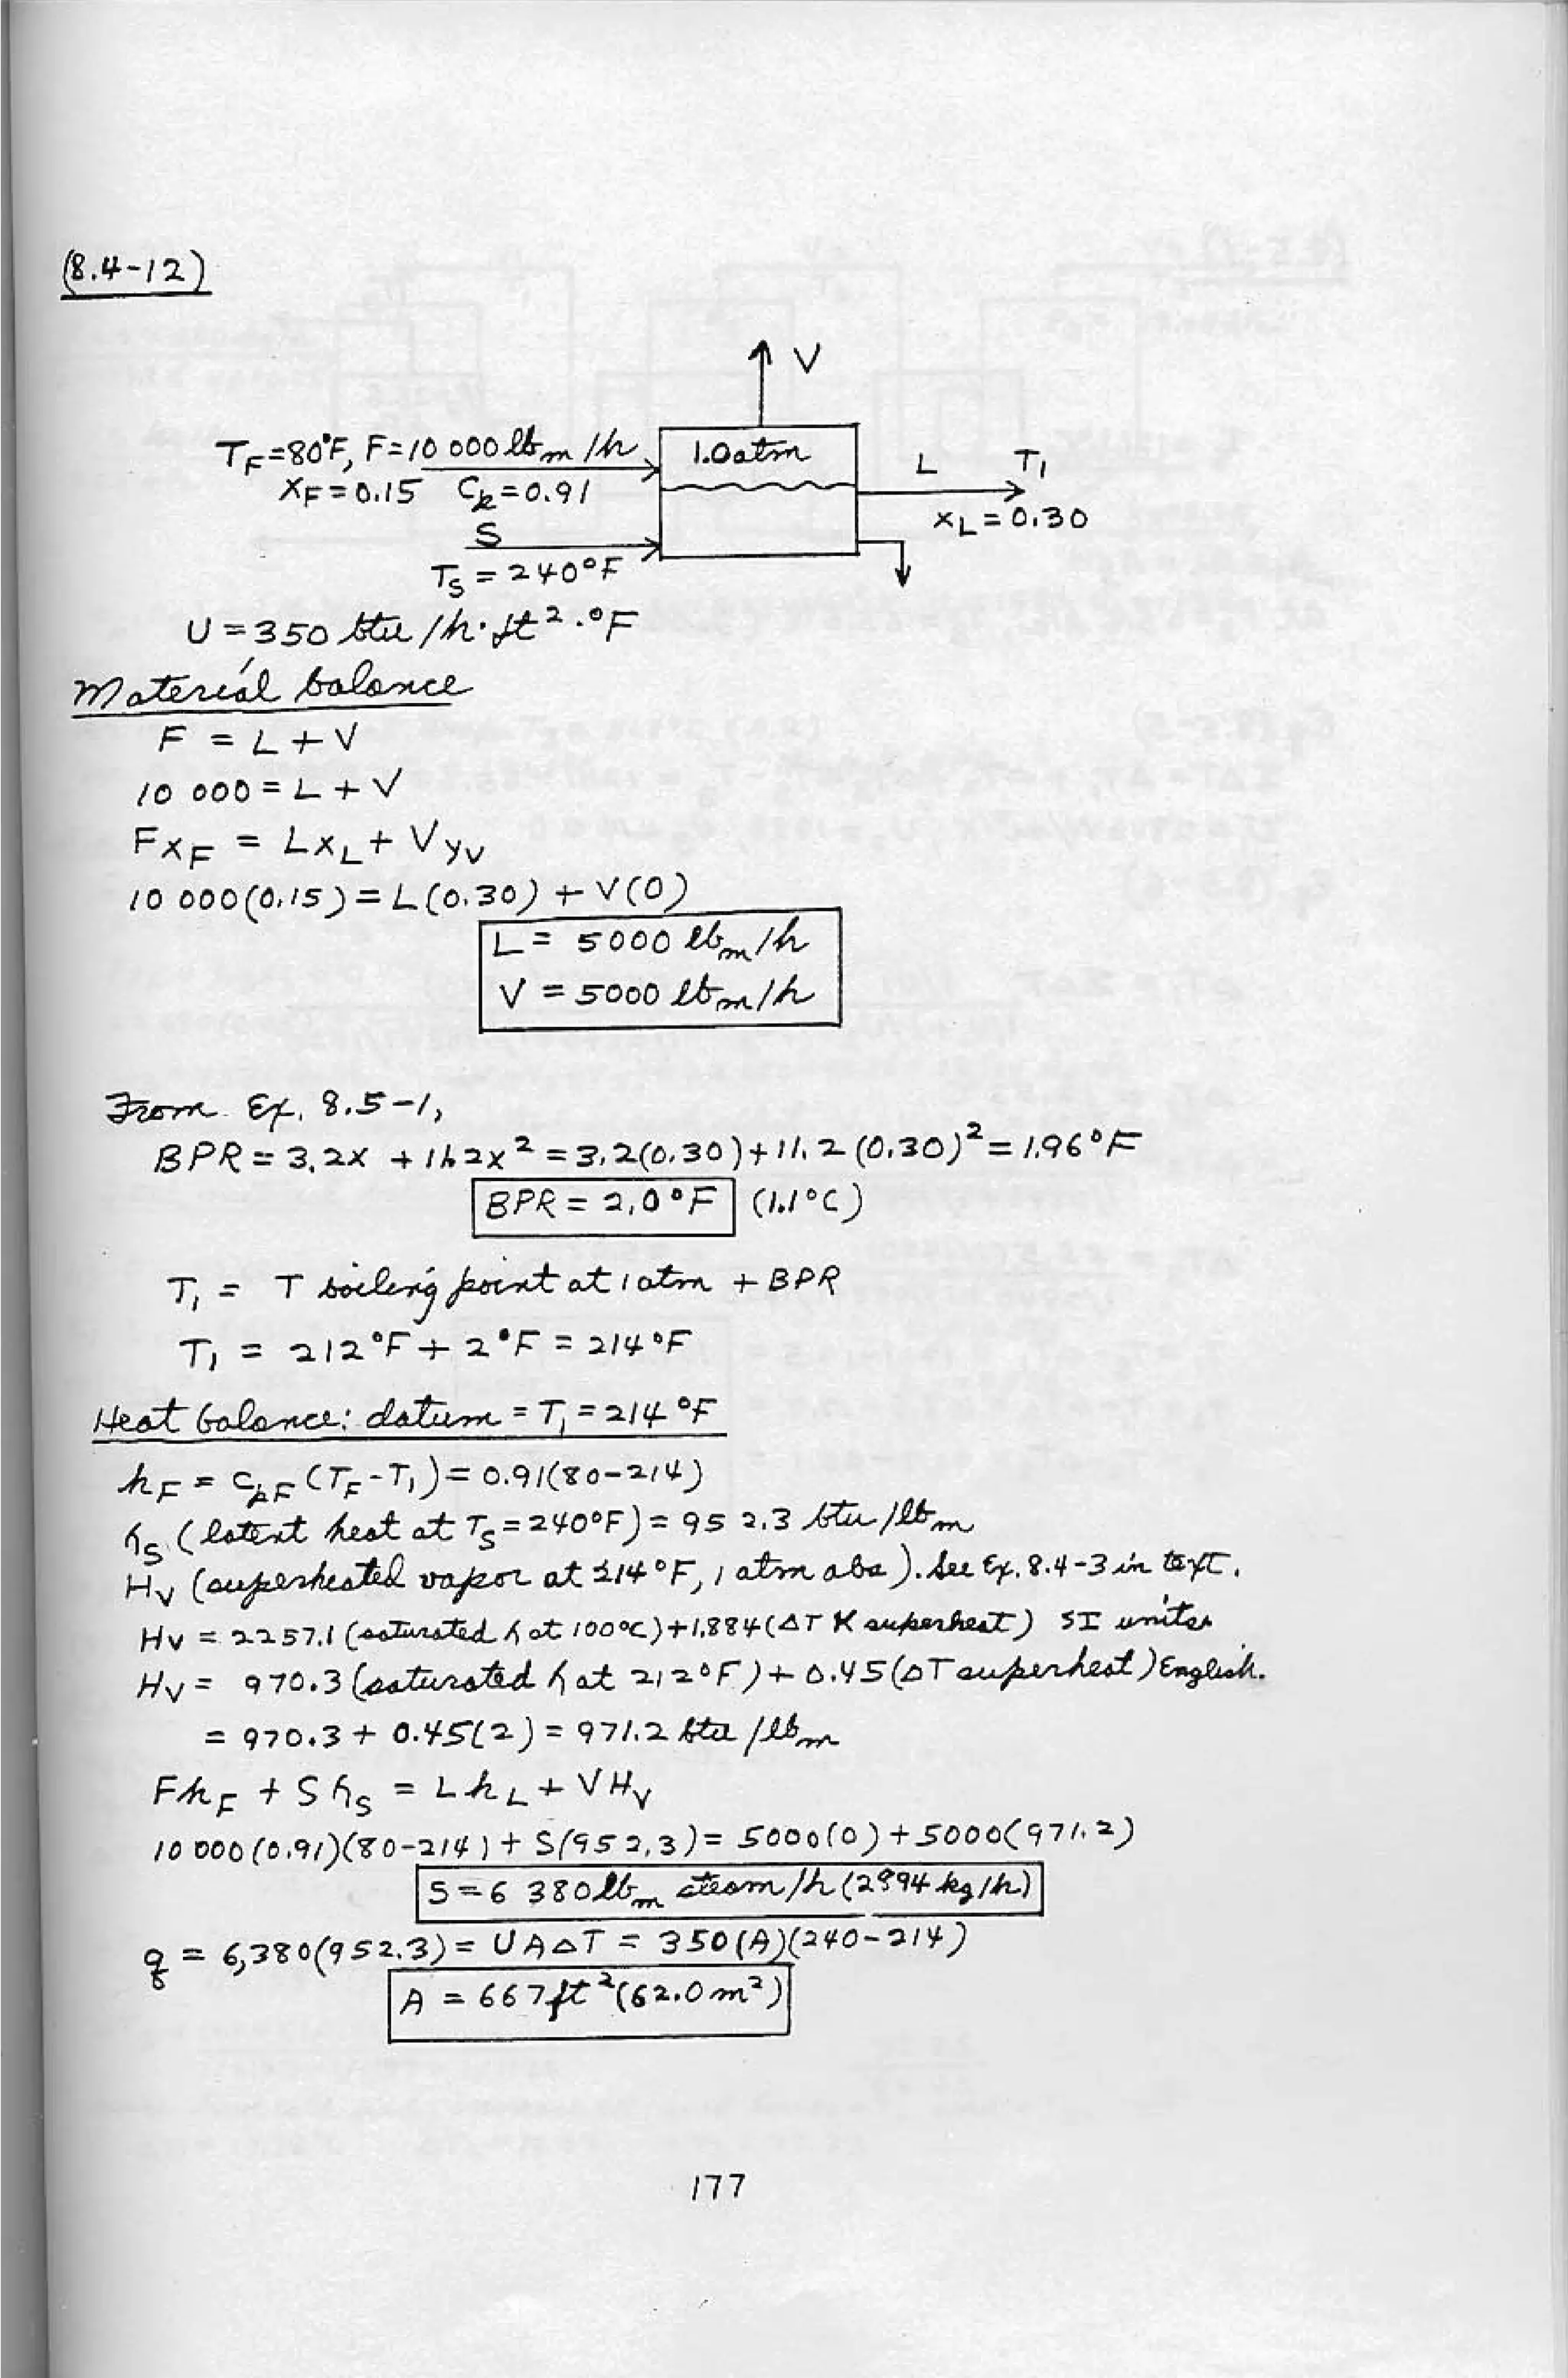 (8.4-12)
V
T_F=80°F, F=10 000 lbm/h
1.0 atm
L T₁
x_F=0.15 C_p=0.91
x_L=0.30
S
T_S=240°F
U=350 btu/h·ft²·°F
Material balance
F = L + V
10 000 = L + V
Fx_F = Lx_L + Vy_V
10 000(0.15) = L(0.30) + V(0)
L = 5000 lbm/h
V = 5000 lbm/h
From Ex. 8.5-1,
BPR = 3.2x + 11.2x² = 3.2(0.30)+11.2(0.30)² = 1.96°F
BPR = 2.0°F (1.1°C)
T₁ = T boiling point at 1 atm + BPR
T₁ = 212°F + 2°F = 214°F
Heat balance: datum = T₁ = 214°F
h_F = c_pF(T_F-T₁) = 0.91(80-214)
λ_S (latent heat at T_S=240°F) = 952.3 btu/lbm
H_V (superheated vapor at 214°F, 1 atm abs). See Ex. 8.4-3 in text.
H_V = 2257.1 (saturated λ at 100°C)+1.884(ΔT K superheat) SI units
H_V = 970.3 (saturated λ at 212°F)+0.45(ΔT superheat) English.
= 970.3 + 0.45(2) = 971.2 btu/lbm
Fh_F + Sλ_S = Lh_L + VH_V
10 000(0.91)(80-214) + S(952.3) = 5000(0)+5000(971.2)
S=6 380 lbm steam/h (2894 kg/h)
q = 6,380(952.3) = UAΔT = 350(A)(240-214)
A = 667 ft² (62.0 m²)
177